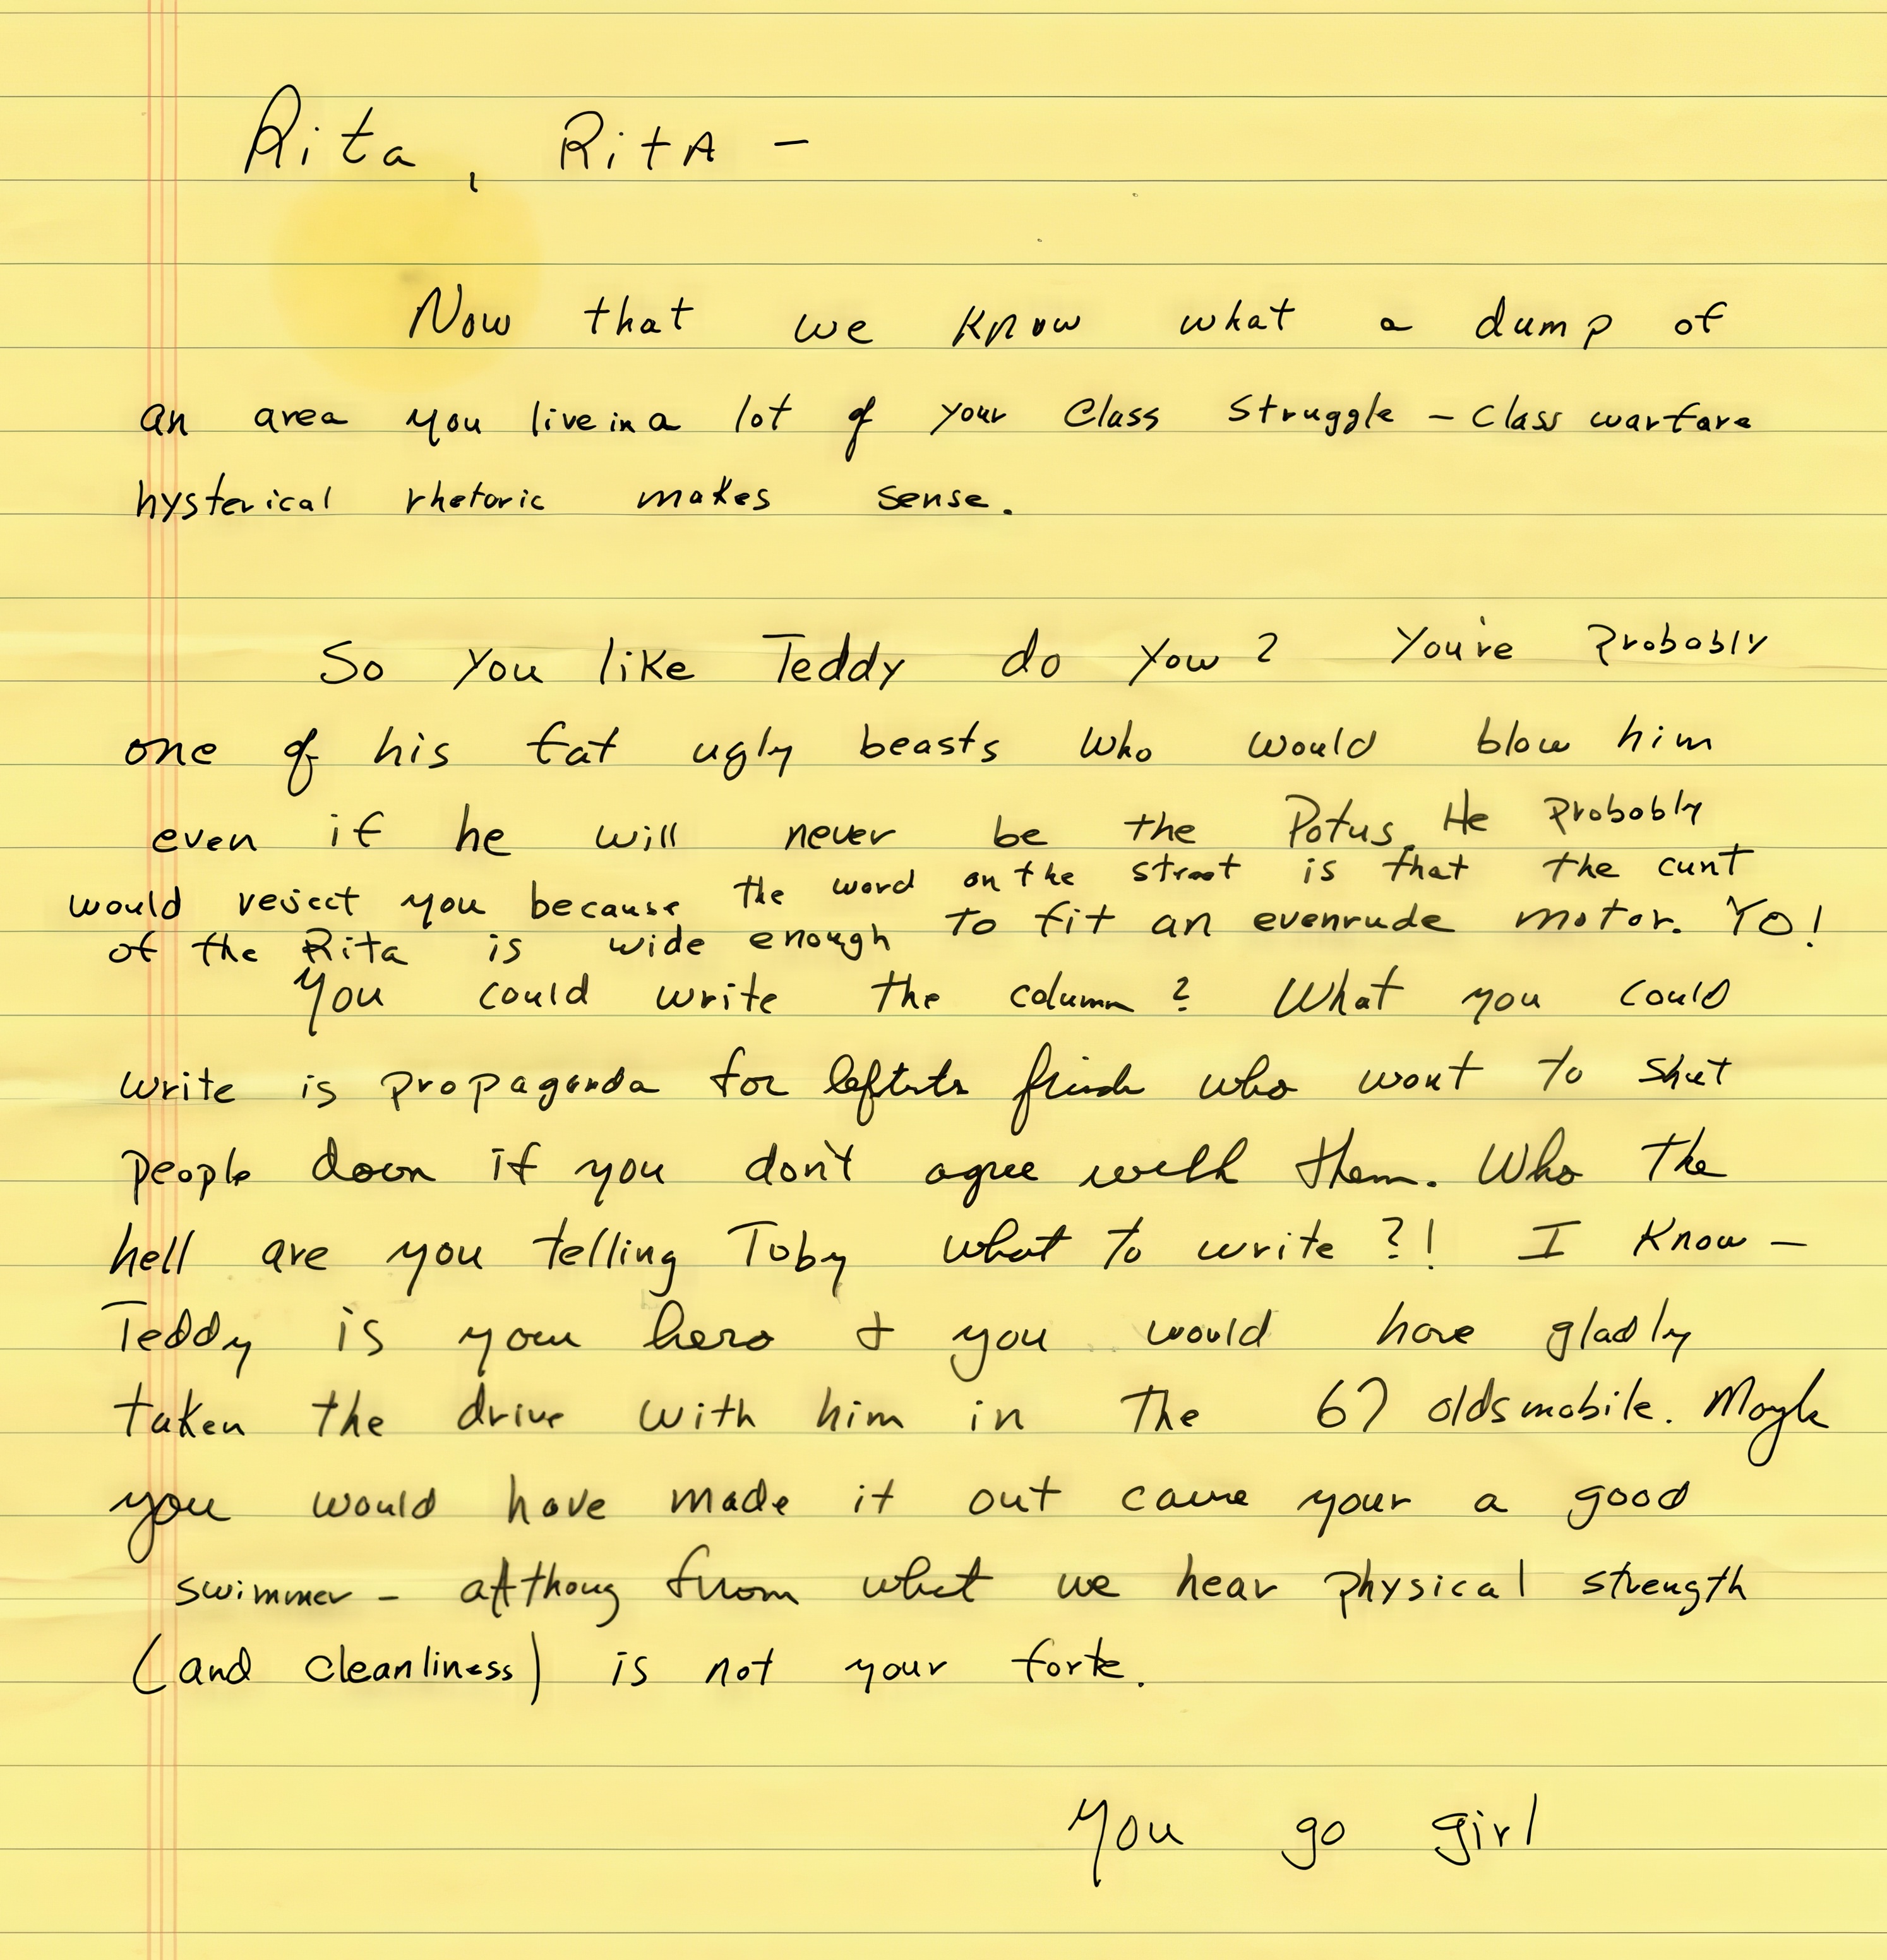 Rita, RitA -
Now that we know what a dump of
an area you live in a lot of your Class Struggle - Class warfare
hysterical rhetoric makes sense.
So you like Teddy do you? You're Probably
one of his fat ugly beasts who would blow him
even if he will never be the Potus. He Probobly
would reject you because the word on the street is that the cunt
of the Rita is wide enough to fit an evenrude motor. YO!
You could write the column? What you could
write is propaganda for who want to shut
people down if you don't agree with them. Who the
hell are you telling Toby what to write?! I know -
Teddy is your hero + you would have gladly
taken the drive with him in the 67 oldsmobile. Maybe
you would have made it out cause your a good
swimmer - from what we hear physical strength
(and cleanliness) is not your forte.
You go girl